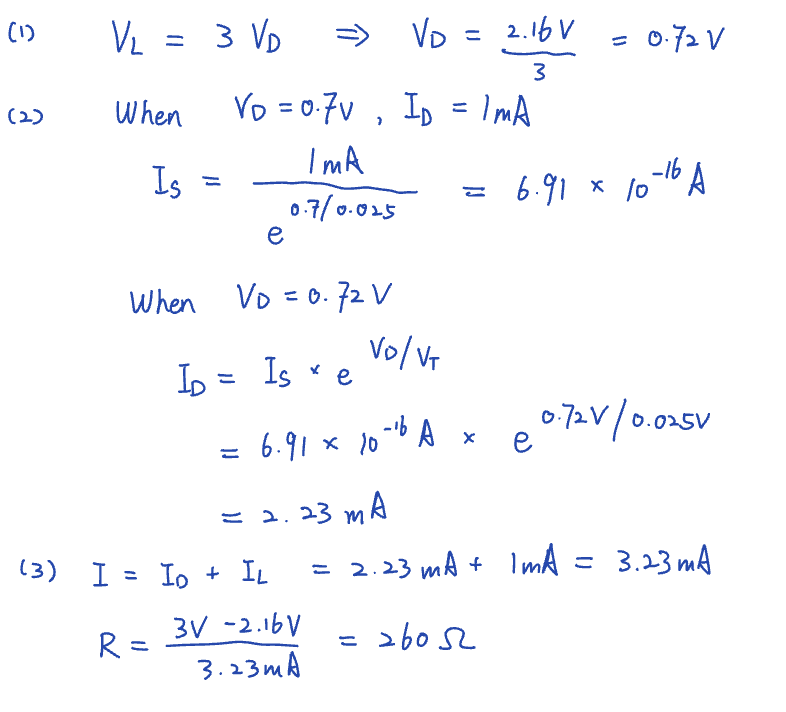 (1) V_L = 3 V_D ⇒ V_D = 2.16V / 3 = 0.72 V
(2) When V_D = 0.7V , I_D = 1mA
I_S = 1mA / e^(0.7/0.025) = 6.91 × 10^-16 A
When V_D = 0.72 V
I_D = I_S × e^(V_D/V_T)
= 6.91 × 10^-16 A × e^(0.72V/0.025V)
= 2.23 mA
(3) I = I_D + I_L = 2.23 mA + 1mA = 3.23 mA
R = 3V - 2.16V / 3.23mA = 260 Ω